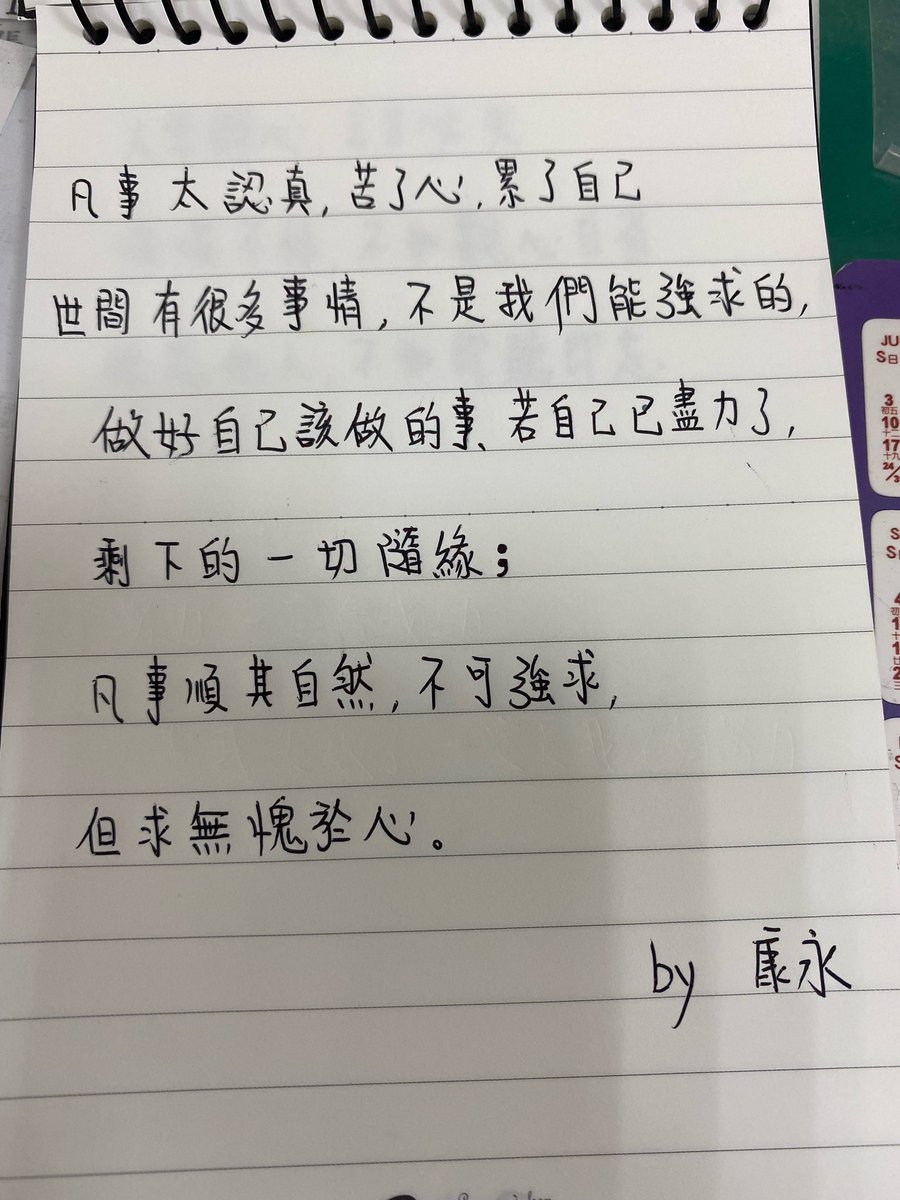 凡事太認真,苦了心,累了自己
世間有很多事情,不是我們能強求的,
做好自己該做的事、若自己已盡力了,
剩下的一切隨緣;
凡事順其自然,不可強求,
但求無愧於心。
by 康永
JU
S日
3
初五
10
十二
17
十九
24/3
S